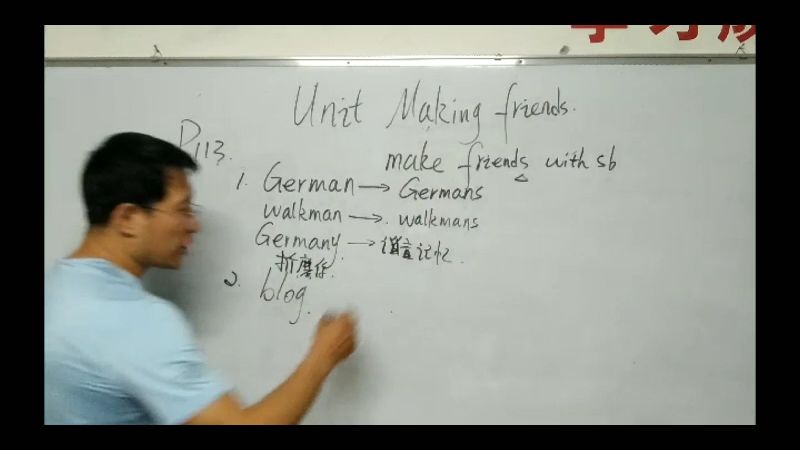 学习
Unit Making friends.
P113.
make friends with sb
1. German → Germans
walkman → walkmans
Germany → 谐音记忆.
折磨你.
2. blog.